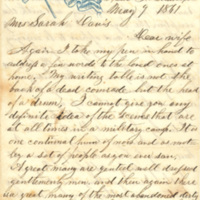 May 9 1861.
Mrs Sarah Davis
Dear wife
Again I take my pen in hand to
address a few words to the loved ones at
home. My writing table is not the
back of a dead comrade but the head
of a drum. I cannot give you any
definite idea of the scenes that are
at all times in a military camp. It is
one continual hum of noise and is not
by a set of people
A great many are genteel well dressed
gentlemanly men and then again there
is a great many of the most abandoned dirty